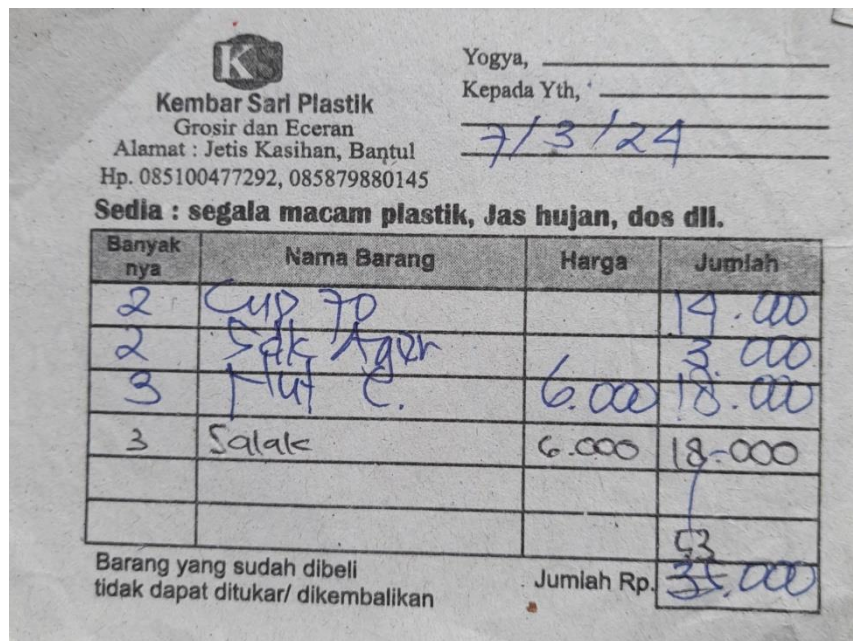 KS
Kembar Sari Plastik
Grosir dan Eceran
Alamat : Jetis Kasihan, Bantul
Hp. 085100477292, 085879880145
Yogya,
Kepada Yth,
7/3/24
Sedia : segala macam plastik, Jas hujan, dos dll.
Banyak nya Nama Barang Harga Jumlah
2 Cup 70 14.000
2 Sdk Agar 3.000
3 Nut C. 6.000 18.000
3 Salak 6.000 18.000
53
Barang yang sudah dibeli
tidak dapat ditukar/ dikembalikan
Jumlah Rp. 35.000